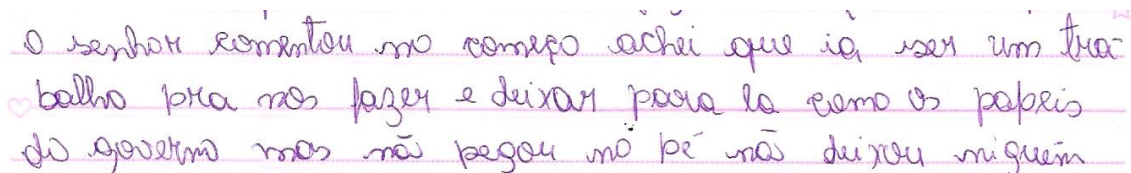 o senhor comentou no começo achei que ia ser um tra-
balho pra nos fazer e deixar para la como os papeis
do governo mas não pegou no pé não deixou niguém